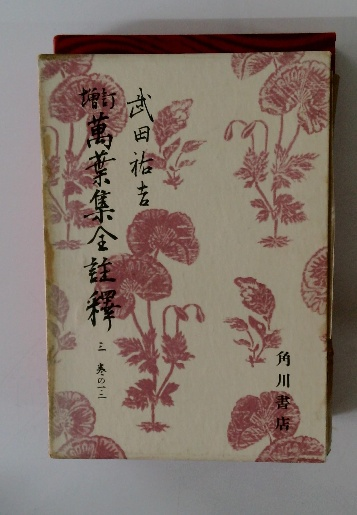 武田祐吉
増訂
萬葉集全註釋
三 巻の一・二
角川書店